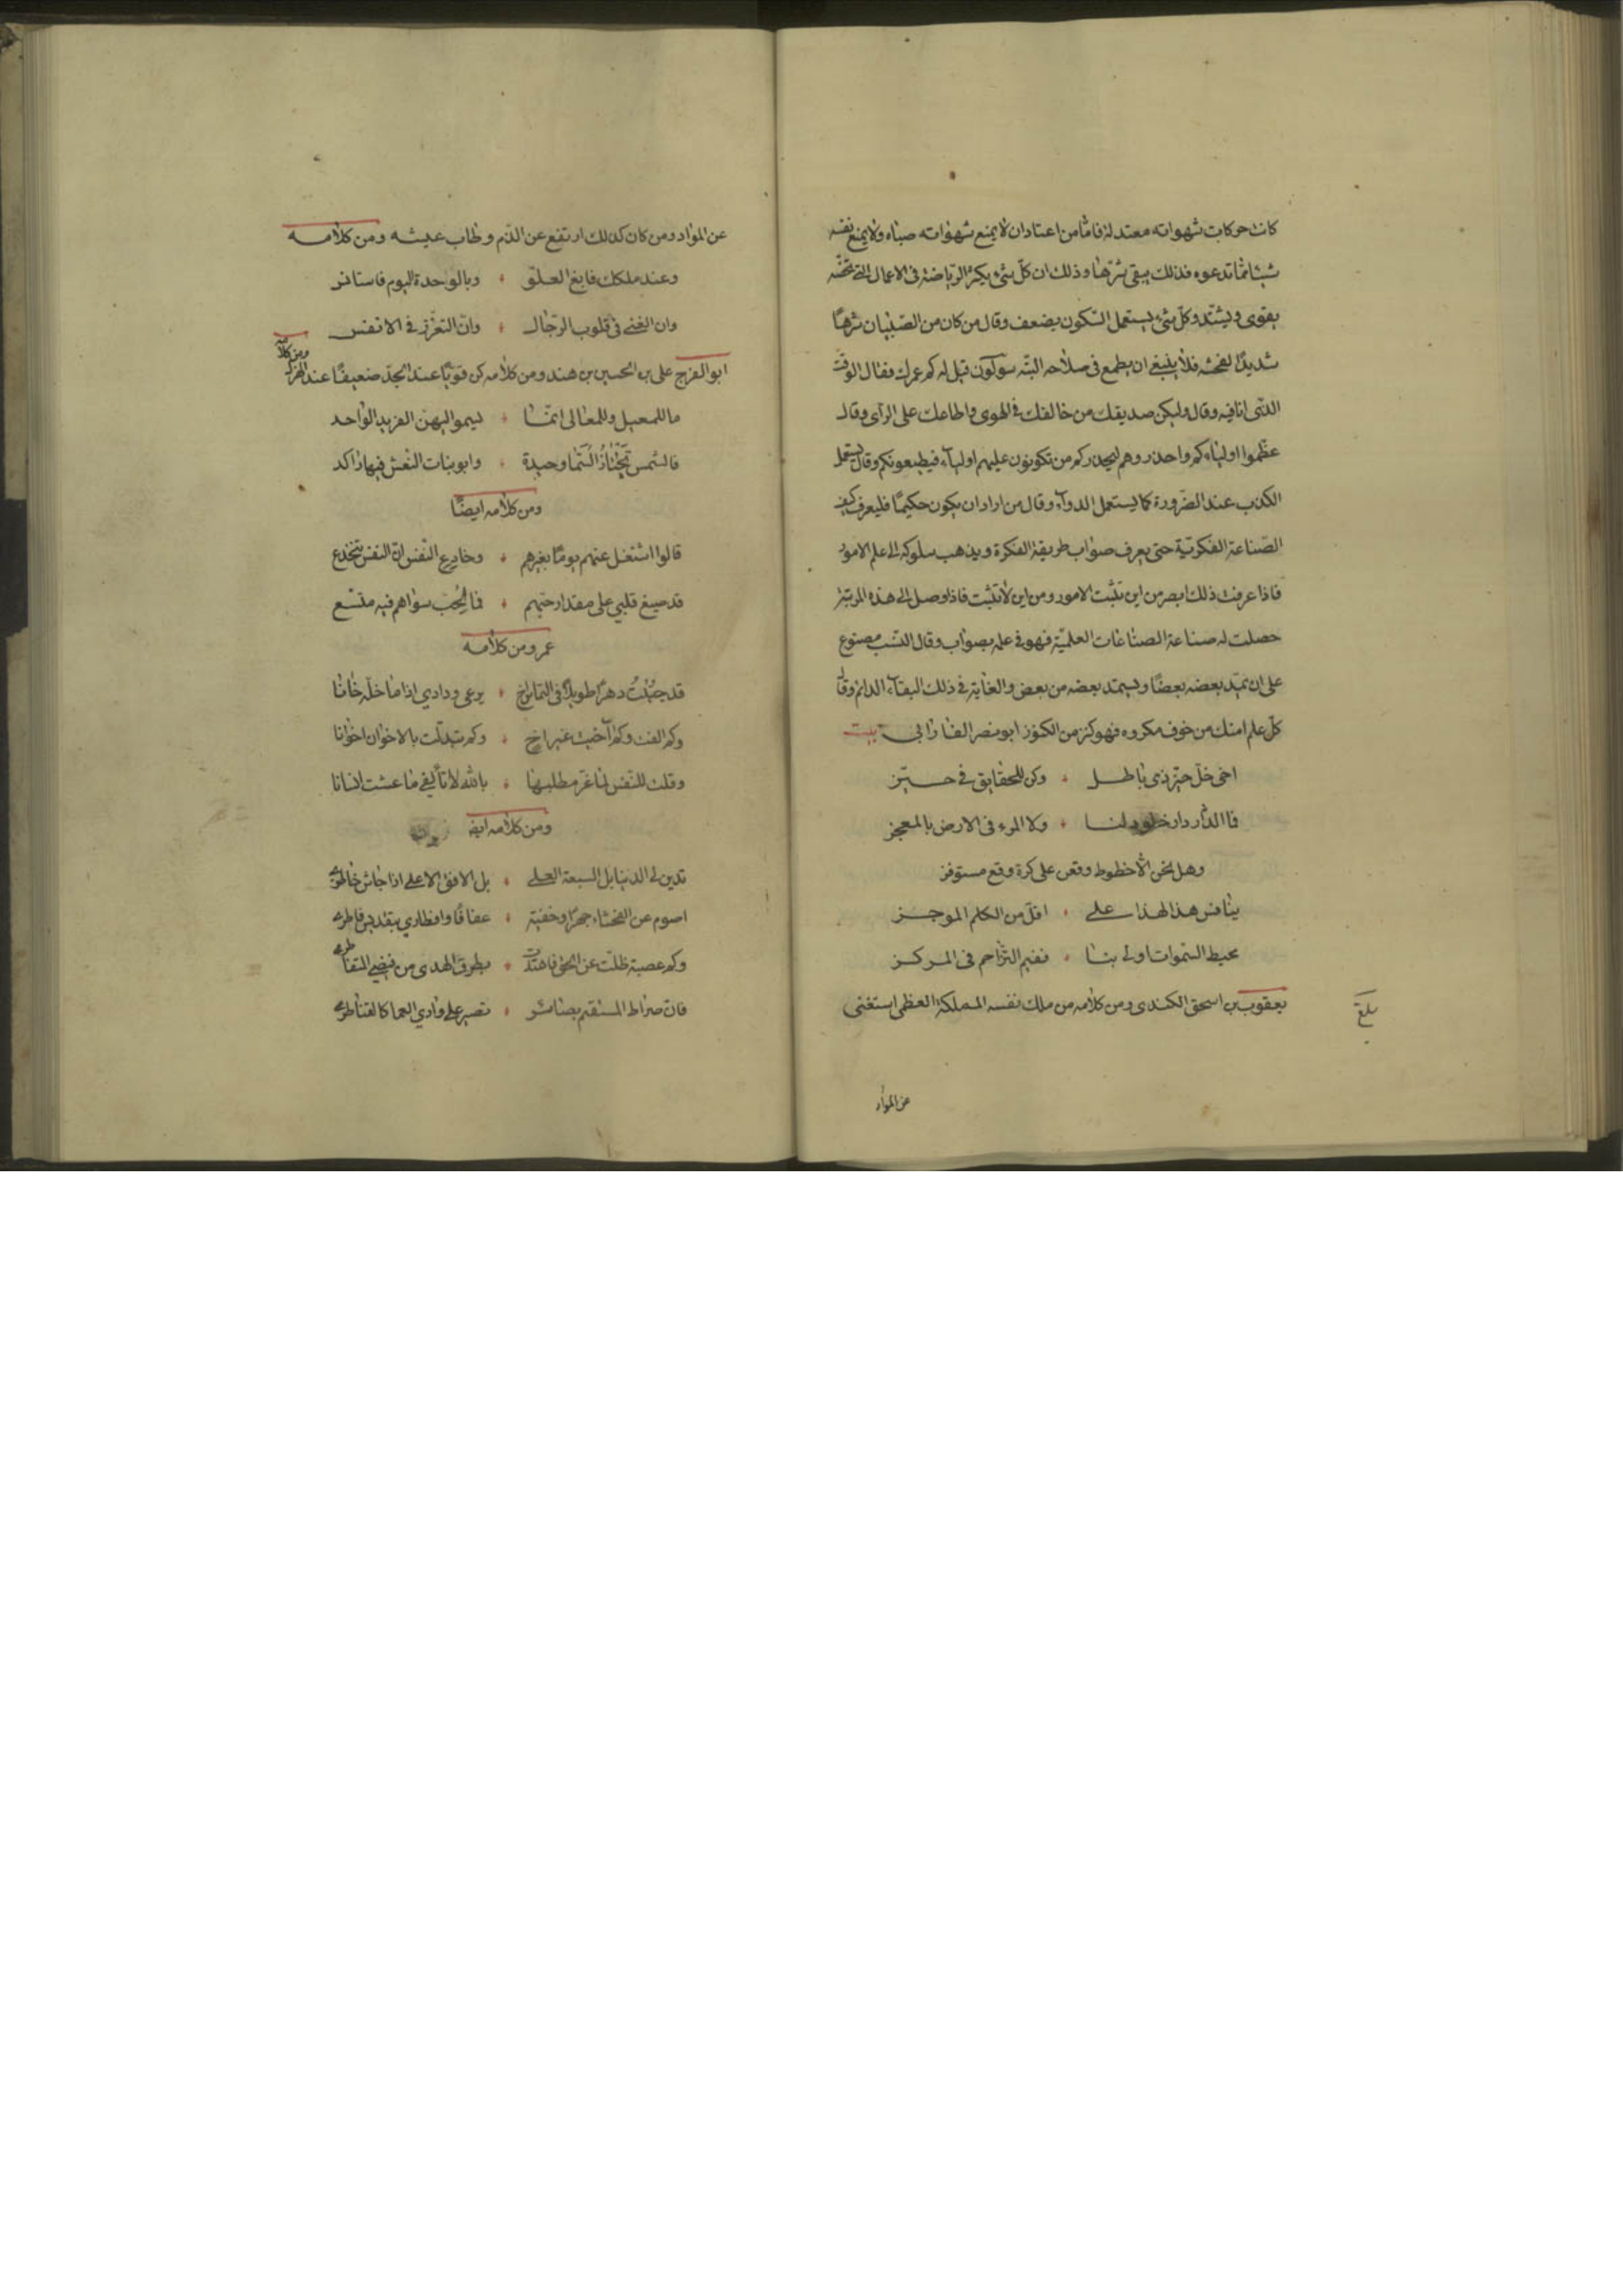 كانت حركات شهواته معتدلة فامّا من اعتاد ان لا يمنع شهواته صباه ولا يمنع نفسه
شيئا ممّا تدعوه فذلك يبقى شرّها وذلك ان كلّ شئ يكثر الرّياضة فى الاعمال التى تخصّه
يقوى ويشتد وكلّ شئ يستعمل السّكون يضعف وقال من كان من الصّبيان شرهًا
شديدًا لقحته فلا ينبغى ان يطمع فى صلاحه البتّه سولون قيل له كم عمرك فقال الوقت
الذّى انا فيه وقال وليكن صديقك من خالفك فى الهوى واطاعك على الرّأى وقال
عظّموا اولياءكم واحذروهم ليحذركم من تكونون عليهم اولياء فيطيعونكم وقال يستعمل
الكذب عند الضّرورة كما يستعمل الدواء وقال من اراد ان يكون حكيمًا فليعرف كيف
الصّناعة الفكريّة حتى يعرف صواب طريقة الفكرة ويذهب سلوكه الى علم الامور
فاذا عرفت ذلك ابصر من اين تثبت الامور ومن اين لا تثبت فاذا وصل الى هذه المرتبة
حصلت له صناعة الصناعات العلميّة فهو فى علمه بصواب وقال النسب مصنوع
على ان يمد بعضه بعضًا ويستمد بعضه من بعض والغاية فى ذلك البقاء الدائم وقال
كلّ علم امنك من خوف مكروه فهو كنز من الكنوز ابو نصر الفارابى بيت
اخى خلّ حيّز ذى باطل وكن للحقايق فى حيّز
فما الدّار دار خلود لنا ولا المرء فى الارض بالمعجز
وهل نحن الّا خطوط وقعن على كرة وقع مستوفز
ينافس هذا لهذا على اقلّ من الكلم الموجز
محيط السّموات اولى بنا ففيم التّزاحم فى المركز
يعقوب بن اسحق الكندى ومن كلامه من ملك نفسه المملكة العظمى استغنى
بلغ
عن المواد
عن المواد ومن كان كذلك ارتفع عن الذّم وطاب عيشه ومن كلامه
وعند ملكك فابغ العلوّ وبالوحدة اليوم فاستانس
وان الغنى فى قلوب الرّجال وانّ التعزّز فى الانفس
ابو الفرج على بن الحسين بن هند ومن كلامه كن قويًا عند الجدّ ضعيفًا عند الهزل
ومن كلامه
ما للمعيل وللمعالى انمّا يسمو اليهنّ الفريد الواحد
فالشمس تَجْتازُ السَّمَا وحيدة وابو بنات النّعش فيها راكد
ومن كلامه ايضًا
قالوا اشتغل عنهم يومًا بغيرهم وخادِعِ النّفس انّ النفس تنخدع
قد صيغ قلبي على مقدار حبّهم فما لحُب سواهم فيه متّسع
عمر ومن كلامه
دهرًا طويلاً فى التماس اخ يرعى ودادي اذا ما خلّه خانا
وكم الفت وكم آخيت غير اخ وكم تبدلّت بالاخوان اخوانا
وقلت للنّفس لمّا عزّ مطلبها بالله لا تألفي ما عشت انسانا
ومن كلامه ايضا
تدين لى الدنيا بل السبعة العلى بل الافق الاعلى اذا جاش خاطري
اصوم عن الفحشاء جهرًا وخفية عفافًا وافطاري بتقديس فاطري
وكم عصبة ظلّت عن الحق فاهتدت بطرق الهدى من فيضي المتقاطر
فانّ صراط المستقيم بصائر نصبن على وادي العما كالقناطر